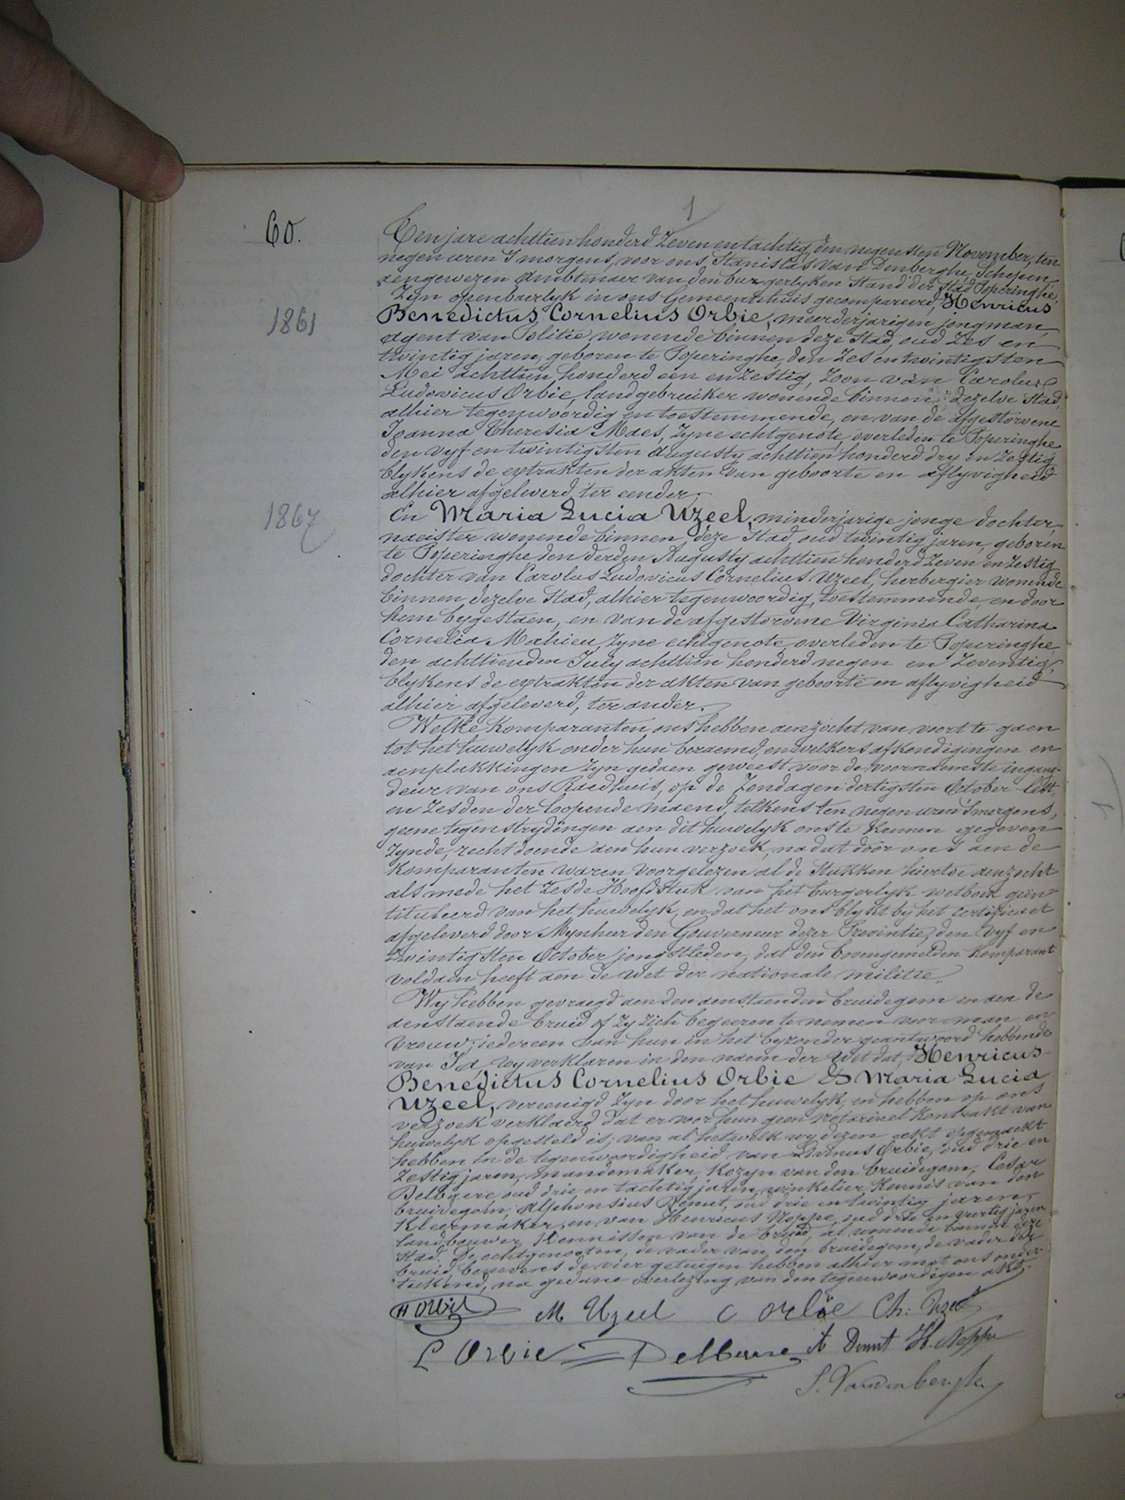 1
60.
Ten jare achttien honderd zeven en tachtig, den negensten November, ten
negen uren 's morgens, voor ons Stanislas Van Denberghe, Schepen,
aengewezen Ambtenaer van den burgerlyken Stand der Stad Poperinghe,
Zyn openbaerlyk in ons Gemeentehuis gecompareerd, Henricus
1861
Benedictus Cornelius Orbie, meerderjarigen jongman,
agent van Politie, wonende binnen deze Stad, oud zes en
twintig jaren, geboren te Poperinghe, den zes en twintigsten
Mei achttien honderd een en zestig, zoon van Carolus
Ludovicus Orbie, landgebruiker wonende binnen dezelve Stad,
alhier tegenwoordig en toestemmende, en van de afgestorvene
Joanna Theresia Maes, zyne echtgenote, overleden te Poperinghe
den vyf en twintigsten Augusty achttien honderd dry en zestig
blykens de extrakten der akten van geboorte en aflyvigheid
alhier afgeleverd, ter eender,
1867
En Maria Lucia Uzeel, minderjarige jonge dochter,
naeister wonende binnen deze Stad, oud twintig jaren, geboren
te Poperinghe den derden Augusty achttien honderd zeven en zestig
dochter van Carolus Ludovicus Cornelius Uzeel, herbergier wonende
binnen dezelve Stad, alhier tegenwoordig, toestemmende, en door
hem bygestaen, en van de afgestorvene Virginia Catharina
Cornelia Mahieu zyne echtgenote overleden te Poperinghe
den achttienden July achttien honderd negen en zeventig,
blykens de extrakten der akten van geboorte en aflyvigheid
alhier afgeleverd, ter ander.
Welke Komparanten ons hebben aenzocht van voort te gaen
tot het huwelyk onder hun beraemd, en welkers afkondigingen en
aenplakkingen zyn gedaen geweest voor de voornaemste ingang-
deur van ons Raedhuis, op de Zondagen dertigsten October lest
en zesden der loopende maend, telkens ten negen uren 's morgens,
geene tegenstrydingen aen dit huwelyk ons te kennen gegeven
zynde, recht doende aen hun verzoek, nadat door ons aen de
Komparanten waren voorgelezen al de Stukken hiertoe aenzocht
als mede het zesde Hoofdstuk van het burgerlyk wetboek gein-
tituleerd van het huwelyk, en dat het ons blykt by het certificaet
afgeleverd door Mynheer den Gouverneur dezer Provintie, den vyf en
twintigsten October jongstleden, dat den bovengemelden Komparant
voldaen heeft aen de wet der nationale militie.
Wy hebben gevraegd aen den aenstaenden bruidegom en aen de
aenstaende bruid of zy zich begeeren te nemen voor man en
vrouw; iedereen van hun in het byzonder geantwoord hebbende
van Ja, wy verklaren in den naem der Wet dat, Henricus
Benedictus Cornelius Orbie & Maria Lucia
Uzeel, vereenigd zyn door het huwelyk, en hebben op ons
verzoek verklaerd dat er voor hun geen notarieel kontrakt van
huwelyk opgesteld is; van al hetwelk wy dezen akt opgemaekt
hebben in de tegenwoordigheid van Orbie, oud drie en
zestig jaren, mandemaker, kozyn van den bruidegom, Cesar
oud drie en tachtig jaren, winkelier, Kennis van den
bruidegom, Alphonsius oud drie en twintig jaren,
Kleermaker, en van Henricus Noppe, oud drie en jaren
landbouwer, Kennissen van de bruid, al wonende binnen deze
Stad. De echtgenooten, de vader van den bruidegom, de vader der
bruid, benevens de vier getuigen hebben alhier met ons onder-
teekend, na gedane overlezing van den tegenwoordigen akt.
H Orbie M Uzeel C Orbie Ch: Uzeel
L Orbie H. Noppe
S. Vandenberghe